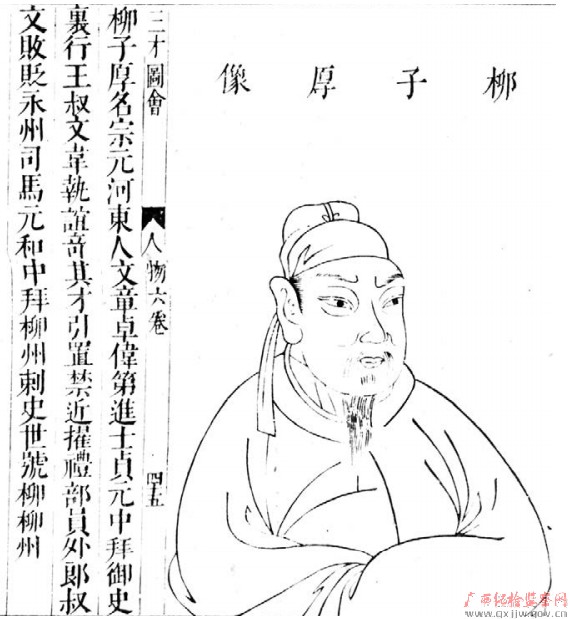 柳子厚像
三才圖會
人物六卷
四五
柳子厚名宗元河東人文章卓偉第進士貞元中拜御史
裏行王叔文韋執誼竒其才引置禁近擢禮部員外郎叔
文敗貶永州司馬元和中拜柳州刺史世號柳柳州
广西纪检监察网
www.gxjjw.gov.cn